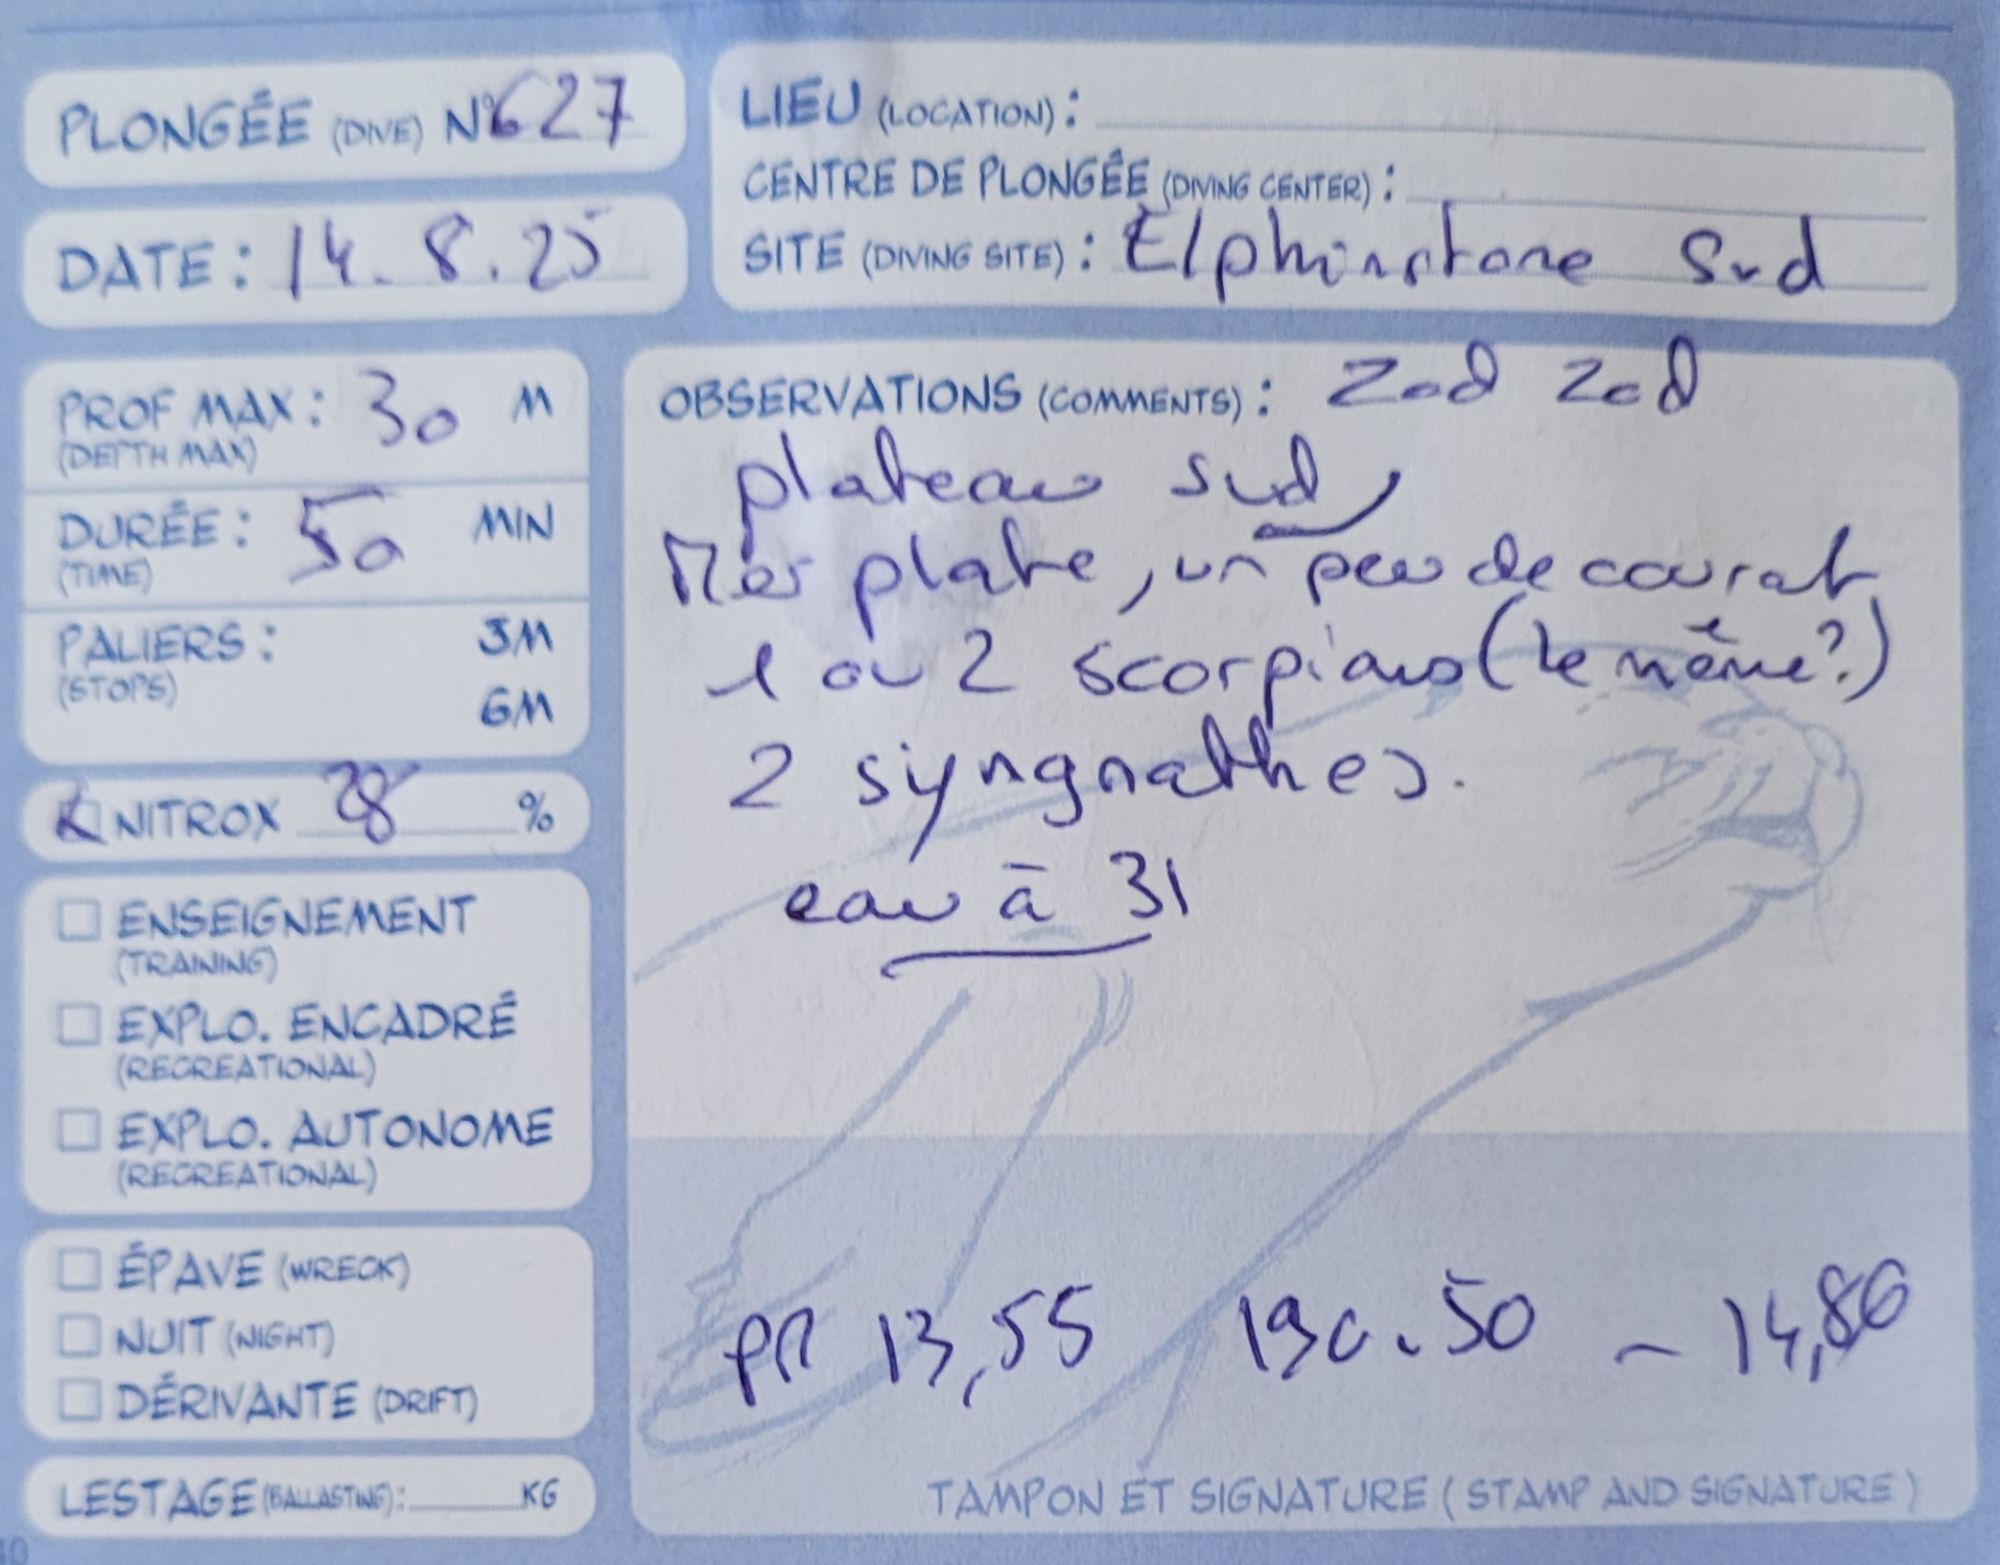 PLONGÉE (DIVE) N° 627
DATE : 14.8.25
LIEU (LOCATION) :
CENTRE DE PLONGÉE (DIVING CENTER) :
SITE (DIVING SITE) : Elphinstone Sud
PROF MAX : 30 M
(DEPTH MAX)
DURÉE : 50 MIN
(TIME)
PALIERS : 3M
(STOPS) 6M
NITROX 28 %
ENSEIGNEMENT
(TRAINING)
EXPLO. ENCADRÉ
(RECREATIONAL)
EXPLO. AUTONOME
(RECREATIONAL)
ÉPAVE (WRECK)
NUIT (NIGHT)
DÉRIVANTE (DRIFT)
LESTAGE (BALLASTING) : KG
OBSERVATIONS (COMMENTS) : Zod Zod
plateau sud,
Mer plate, un peu de courant
1 ou 2 scorpions (le même ?)
2 syngnathes.
eau à 31
PR 13,55 190.50 - 14,86
TAMPON ET SIGNATURE (STAMP AND SIGNATURE)